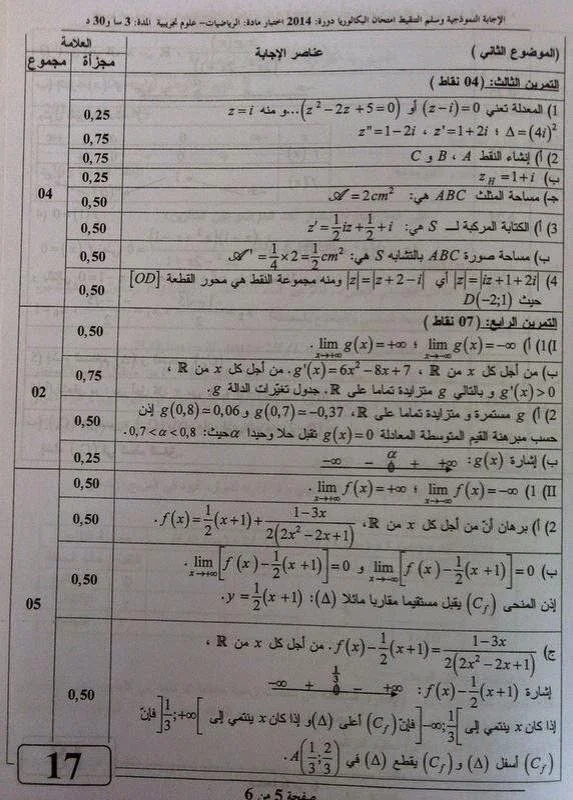 الإجابة النموذجية وسلم التنقيط امتحان البكالوريا دورة: 2014 اختبار مادة: الرياضيات- علوم تجريبية المدة: 3 سا و30 د
العلامة
مجموع
مجزأة
عناصر الإجابة
(الموضوع الثاني)
التمرين الثالث: (04 نقاط)
1) المعدلة تعني (z-i)=0 أو (z²-2z+5=0)...و منه z=i
0,25
Δ=(4i)² ؛ z'=1+2i ، z"=1-2i
0,75
2) أ) إنشاء النقط A ، B و C
0,75
ب) z_H=1+i
0,25
04
ج) مساحة المثلث ABC هي: 𝒜=2cm²
0,50
3) أ) الكتابة المركبة لـ S هي: z'=1/2 iz+1/2+i
0,50
ب) مساحة صورة ABC بالتشابه S هي: 𝒜'=1/4×2=1/2 cm²
0,50
4) |z|=|iz+1+2i| أي |z|=|z+2-i| ومنه مجموعة النقط هي محور القطعة [OD]
حيث D(-2;1)
0,50
التمرين الرابع: (07 نقاط)
I)1) أ) lim x→-∞ g(x)=-∞ ؛ lim x→+∞ g(x)=+∞.
0,50
ب) من أجل كل x من ℝ ، g'(x)=6x²-8x+7. من أجل كل x من ℝ ،
g'(x)>0 و بالتالي g متزايدة تماما على ℝ. جدول تغيّرات الدالة g.
0,75
02
2) أ) g مستمرة و متزايدة تماما على ℝ، g(0,7)=-0,37 و g(0,8)=0,06 إذن
حسب مبرهنة القيم المتوسطة المعادلة g(x)=0 تقبل حلا وحيدا α حيث: 0,7<α<0,8.
0,50
ب) إشارة g(x): -∞ - α 0 + +∞
0,25
II) 1) lim x→-∞ f(x)=-∞ ؛ lim x→+∞ f(x)=+∞.
0,50
2) أ) برهان أنّ من أجل كل x من ℝ، f(x)=1/2(x+1)+(1-3x)/(2(2x²-2x+1)).
0,50
ب) lim x→-∞ [f(x)-1/2(x+1)]=0 و lim x→+∞ [f(x)-1/2(x+1)]=0.
إذن المنحى (C_f) يقبل مستقيما مقاربا مائلا (Δ): y=1/2(x+1).
0,50
05
ج) f(x)-1/2(x+1)=(1-3x)/(2(2x²-2x+1)). من أجل كل x من ℝ ،
إشارة f(x)-1/2(x+1): -∞ + 1/3 0 - +∞
0,50
إذا كان x ينتمي إلى ]-∞;1/3[ فإنّ (C_f) أعلى (Δ) و إذا كان x ينتمي إلى ]1/3;+∞[ فإنّ
(C_f) أسفل (Δ) و (C_f) يقطع (Δ) في A(1/3;2/3).
17
صفحة 5 من 6